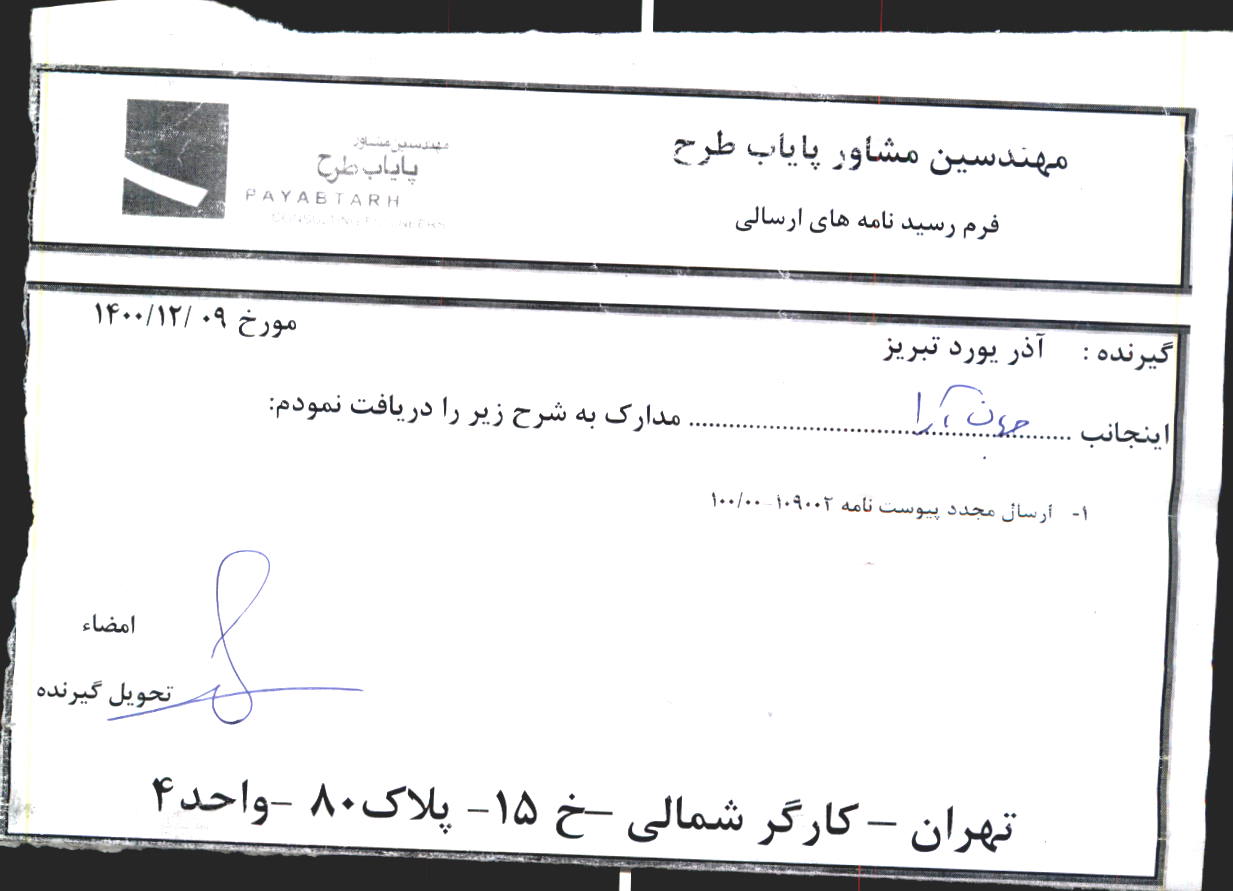 مهندسین مشاور پایاب طرح
فرم رسید نامه های ارسالی
مهندسین مشاور
پایاب طرح
PAYABTARH
CONSULTING ENGINEERS
مورخ ۰۹ /۱۴۰۰/۱۲
گیرنده : آذر یورد تبریز
اینجانب ........ جهان آرا ........ مدارک به شرح زیر را دریافت نمودم:
۱- ارسال مجدد پیوست نامه ۱۰۹۰۰۲-۱۰۰/۰۰
امضاء
تحویل گیرنده
تهران – کارگر شمالی –خ ۱۵- پلاک۸۰ -واحد۴